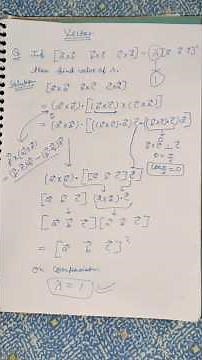 Vector
Q. If [a⃗×b⃗ b⃗×c⃗ c⃗×a⃗] = λ[a⃗ b⃗ c⃗]²
then find value of λ.
Solution [a⃗×b⃗ b⃗×c⃗ c⃗×a⃗]
= (a⃗×b⃗)·[(b⃗×c⃗)×(c⃗×a⃗)]
= (a⃗×b⃗)·[((b⃗×c⃗)·a⃗)c⃗ - ((b⃗×c⃗)·c⃗)a⃗]
(a⃗×b⃗)·[[a⃗ b⃗ c⃗]c⃗]
[a⃗ b⃗ c⃗] (a⃗×b⃗)·c⃗
[a⃗ b⃗ c⃗][a⃗ b⃗ c⃗]
= [a⃗ b⃗ c⃗]²
on comparison
λ = 1